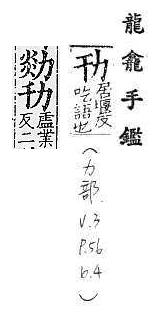 龍龕手鑑
居偃反
吃語也
(力部
v.3
p.56
b.4)
盧業
反二